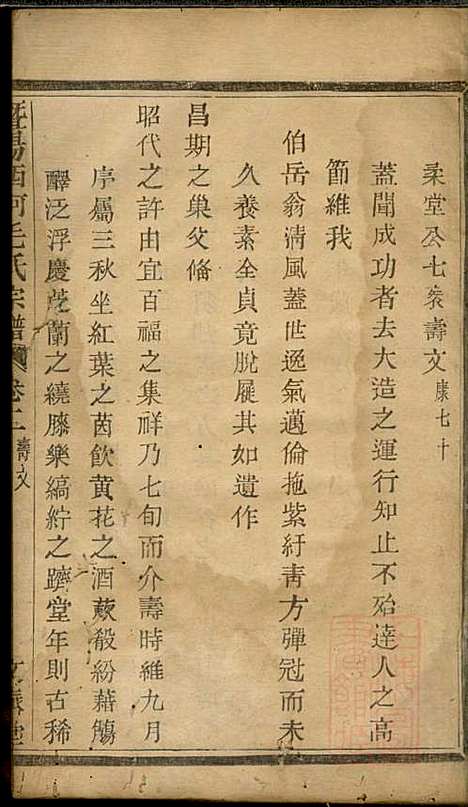 柔堂公七袠壽文康七十
蓋聞成功者去大造之運行知止不殆達人之高
節維我
伯岳翁淸風蓋世逸氣邁倫拖紫紆靑方彈冠而未
久養素全貞竟脫屣其如遺作
昌期之巢父偹
昭代之許由宜百福之集祥乃七旬而介壽時維九月
序屬三秋坐紅葉之茵飮黄花之酒蔌殽紛藉觴
醳泛浮慶芝蘭之繞膝樂縞紵之躋堂年則古稀
暨陽西河毛氏宗譜 卷二 壽文